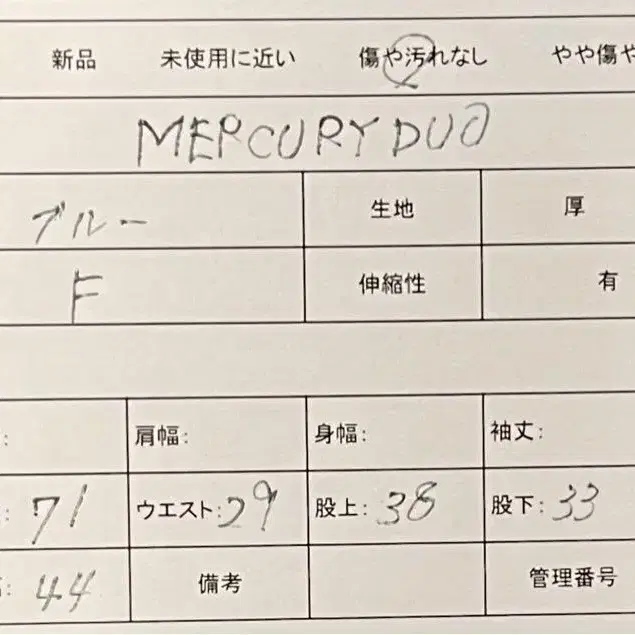 新品 未使用に近い 傷や汚れなし やや傷や
MERCURYDUO
ブルー 生地 厚
F 伸縮性 有
: 肩幅: 身幅: 袖丈:
: 71 ウエスト: 29 股上: 38 股下: 33
: 44 備考 管理番号